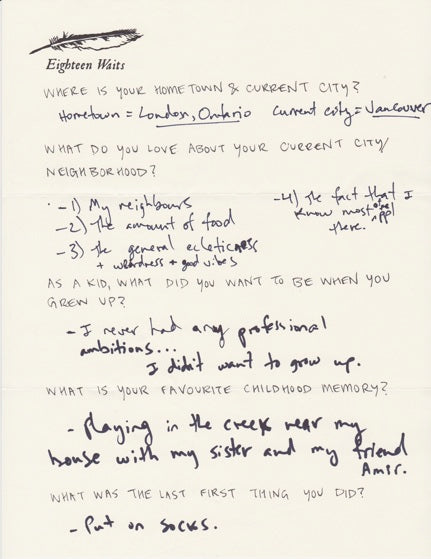 Eighteen Waits
WHERE IS YOUR HOMETOWN & CURRENT CITY?
Hometown = London, Ontario Current city = Vancouver
WHAT DO YOU LOVE ABOUT YOUR CURRENT CITY/
NEIGHBORHOOD?
- 1) My neighbours
- 2) The amount of food
- 3) The general ecleticness
+ weirdness + good vibes
- 4) The fact that I
know most of the ppl
there.
AS A KID, WHAT DID YOU WANT TO BE WHEN YOU
GREW UP?
- I never had any professional
ambitions...
I didn't want to grow up.
WHAT IS YOUR FAVOURITE CHILDHOOD MEMORY?
- Playing in the creek near my
house with my sister and my friend
Amir.
WHAT WAS THE LAST FIRST THING YOU DID?
- Put on socks.